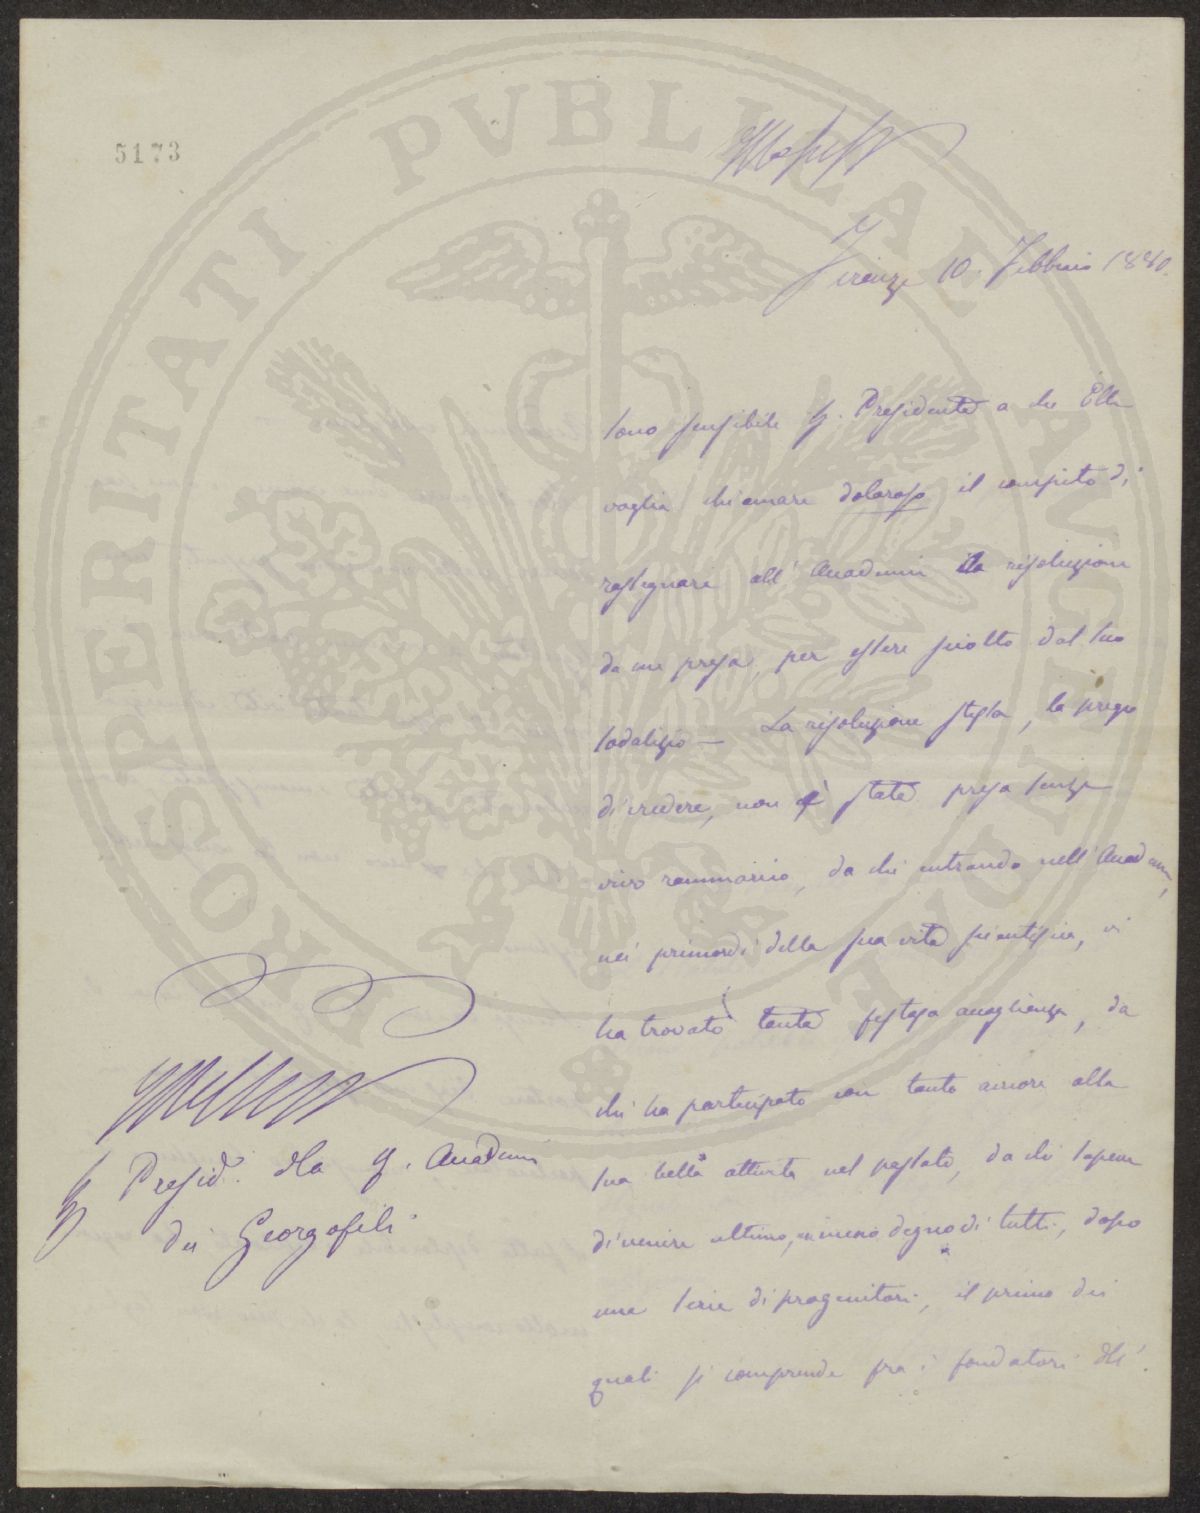 5173
Firenze 10. Febbraio 1880.
Sono sensibile Sr. Presidente a che Ella
voglia chiamare doloroso il compito di
rassegnare all' Accademia la risoluzione
da me presa, per essere sciolto dal suo
sodalizio — La risoluzione stessa, la prego
di credere, non è stata presa senza
vivo rammarico, da chi entrando nell' Accademia,
nei primordi della sua vita scientifica, vi
ha trovato tanta festosa accoglienza, da
chi ha participato con tanto amore alla
sua bella attività nel passato, da chi sapeva
di venire ultimo, e meno degno di tutti, dopo
una serie di progenitori, il primo dei
quali si comprende fra i fondatori dll'
Sr Presid. dlla R. Accademia
dei Georgofili
PROSPERITATI PVBLICAE AVGENDAE